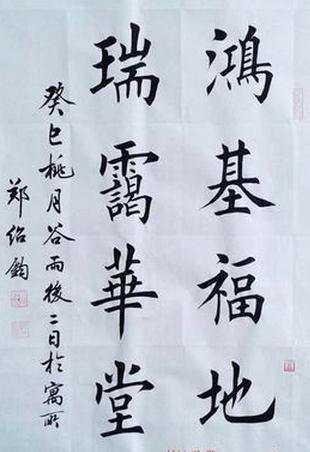 鴻基福地
瑞靄華堂
癸巳桃月谷雨後二日於寓所
郑绍钧